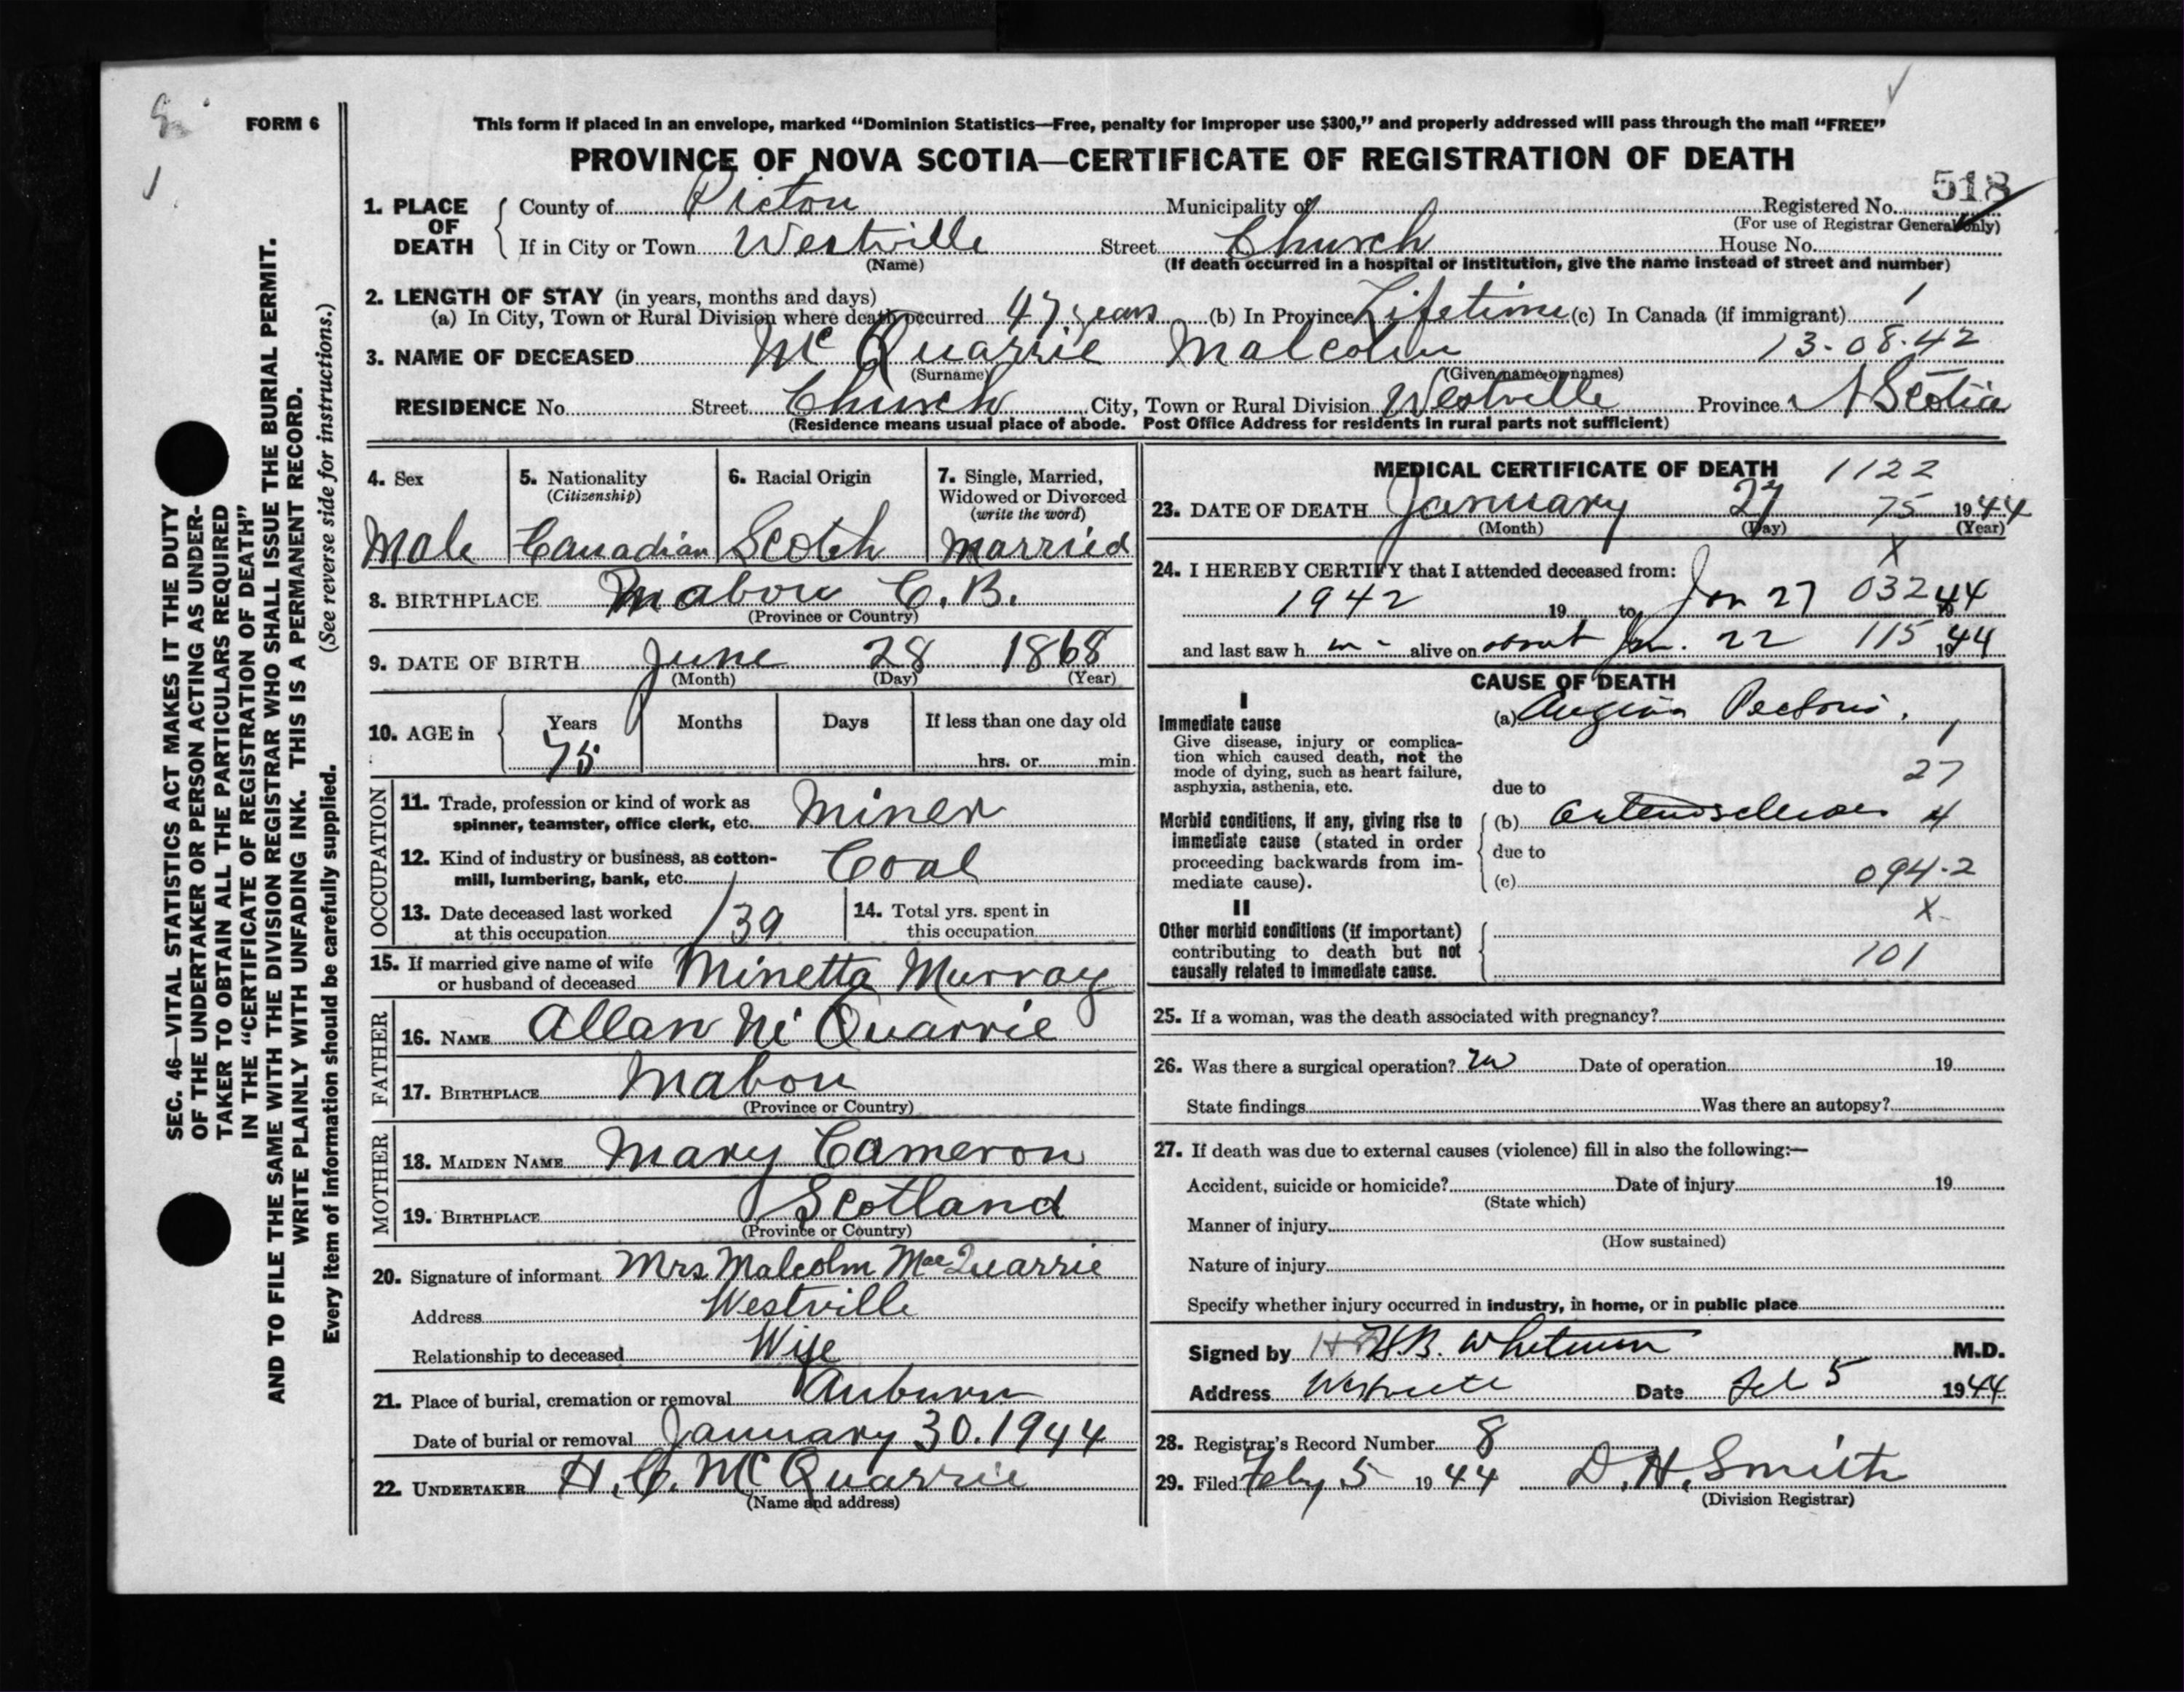 FORM 6
This form if placed in an envelope, marked “Dominion Statistics—Free, penalty for improper use $300,” and properly addressed will pass through the mail “FREE”
PROVINCE OF NOVA SCOTIA—CERTIFICATE OF REGISTRATION OF DEATH
518
1. PLACE OF DEATH
County of Pictou Municipality of Registered No.
(For use of Registrar General only)
If in City or Town Westville Street Church House No.
(Name) (If death occurred in a hospital or institution, give the name instead of street and number)
2. LENGTH OF STAY (in years, months and days)
(a) In City, Town or Rural Division where death occurred 47 years (b) In Province Lifetime (c) In Canada (if immigrant)
3. NAME OF DECEASED McQuarrie Malcolm 13-08-42
(Surname) (Given name or names)
RESIDENCE No. Street Church City, Town or Rural Division Westville Province N Scotia
(Residence means usual place of abode. Post Office Address for residents in rural parts not sufficient)
4. Sex
Male
5. Nationality
(Citizenship)
Canadian
6. Racial Origin
Scotch
7. Single, Married,
Widowed or Divorced
(write the word)
Married
8. BIRTHPLACE Mabou C.B.
(Province or Country)
9. DATE OF BIRTH June 28 1868
(Month) (Day) (Year)
10. AGE in
Years Months Days If less than one day old
75 hrs. or min.
OCCUPATION
11. Trade, profession or kind of work as
spinner, teamster, office clerk, etc. Miner
12. Kind of industry or business, as cotton-
mill, lumbering, bank, etc. Coal
13. Date deceased last worked
at this occupation 139
14. Total yrs. spent in
this occupation
15. If married give name of wife
or husband of deceased Minetta Murray
FATHER
16. NAME Allan Mc Quarrie
17. BIRTHPLACE Mabou
(Province or Country)
MOTHER
18. MAIDEN NAME Mary Cameron
19. BIRTHPLACE Scotland
(Province or Country)
20. Signature of informant Mrs Malcolm MacQuarrie
Address Westville
Relationship to deceased Wife
21. Place of burial, cremation or removal Auburn
Date of burial or removal January 30. 1944
22. UNDERTAKER H. McQuarrie
(Name and address)
MEDICAL CERTIFICATE OF DEATH 1122
23. DATE OF DEATH January 27 75 1944
(Month) (Day) (Year)
X
24. I HEREBY CERTIFY that I attended deceased from:
1942 19 to Jan 27 032 1944
and last saw h m alive on about Jan. 22 115 1944
CAUSE OF DEATH
I
Immediate cause
Give disease, injury or complica-
tion which caused death, not the
mode of dying, such as heart failure,
asphyxia, asthenia, etc.
(a) Angina Pectoris.
1
27
due to
Morbid conditions, if any, giving rise to
immediate cause (stated in order
proceeding backwards from im-
mediate cause).
(b) Arteriosclerosis 4
due to
(c) 094-2
II
X
Other morbid conditions (if important)
contributing to death but not
causally related to immediate cause.
101
25. If a woman, was the death associated with pregnancy?
26. Was there a surgical operation? no Date of operation 19
State findings Was there an autopsy?
27. If death was due to external causes (violence) fill in also the following:—
Accident, suicide or homicide? Date of injury 19
(State which)
Manner of injury
(How sustained)
Nature of injury
Specify whether injury occurred in industry, in home, or in public place
Signed by H.B. Whitman M.D.
Address Westville Date Feb 5 1944
28. Registrar's Record Number 8
29. Filed Feby 5 1944 D.H. Smith
(Division Registrar)
SEC. 46—VITAL STATISTICS ACT MAKES IT THE DUTY
OF THE UNDERTAKER OR PERSON ACTING AS UNDER-
TAKER TO OBTAIN ALL THE PARTICULARS REQUIRED
IN THE “CERTIFICATE OF REGISTRATION OF DEATH”
AND TO FILE THE SAME WITH THE DIVISION REGISTRAR WHO SHALL ISSUE THE BURIAL PERMIT.
WRITE PLAINLY WITH UNFADING INK. THIS IS A PERMANENT RECORD.
Every item of information should be carefully supplied. (See reverse side for instructions.)